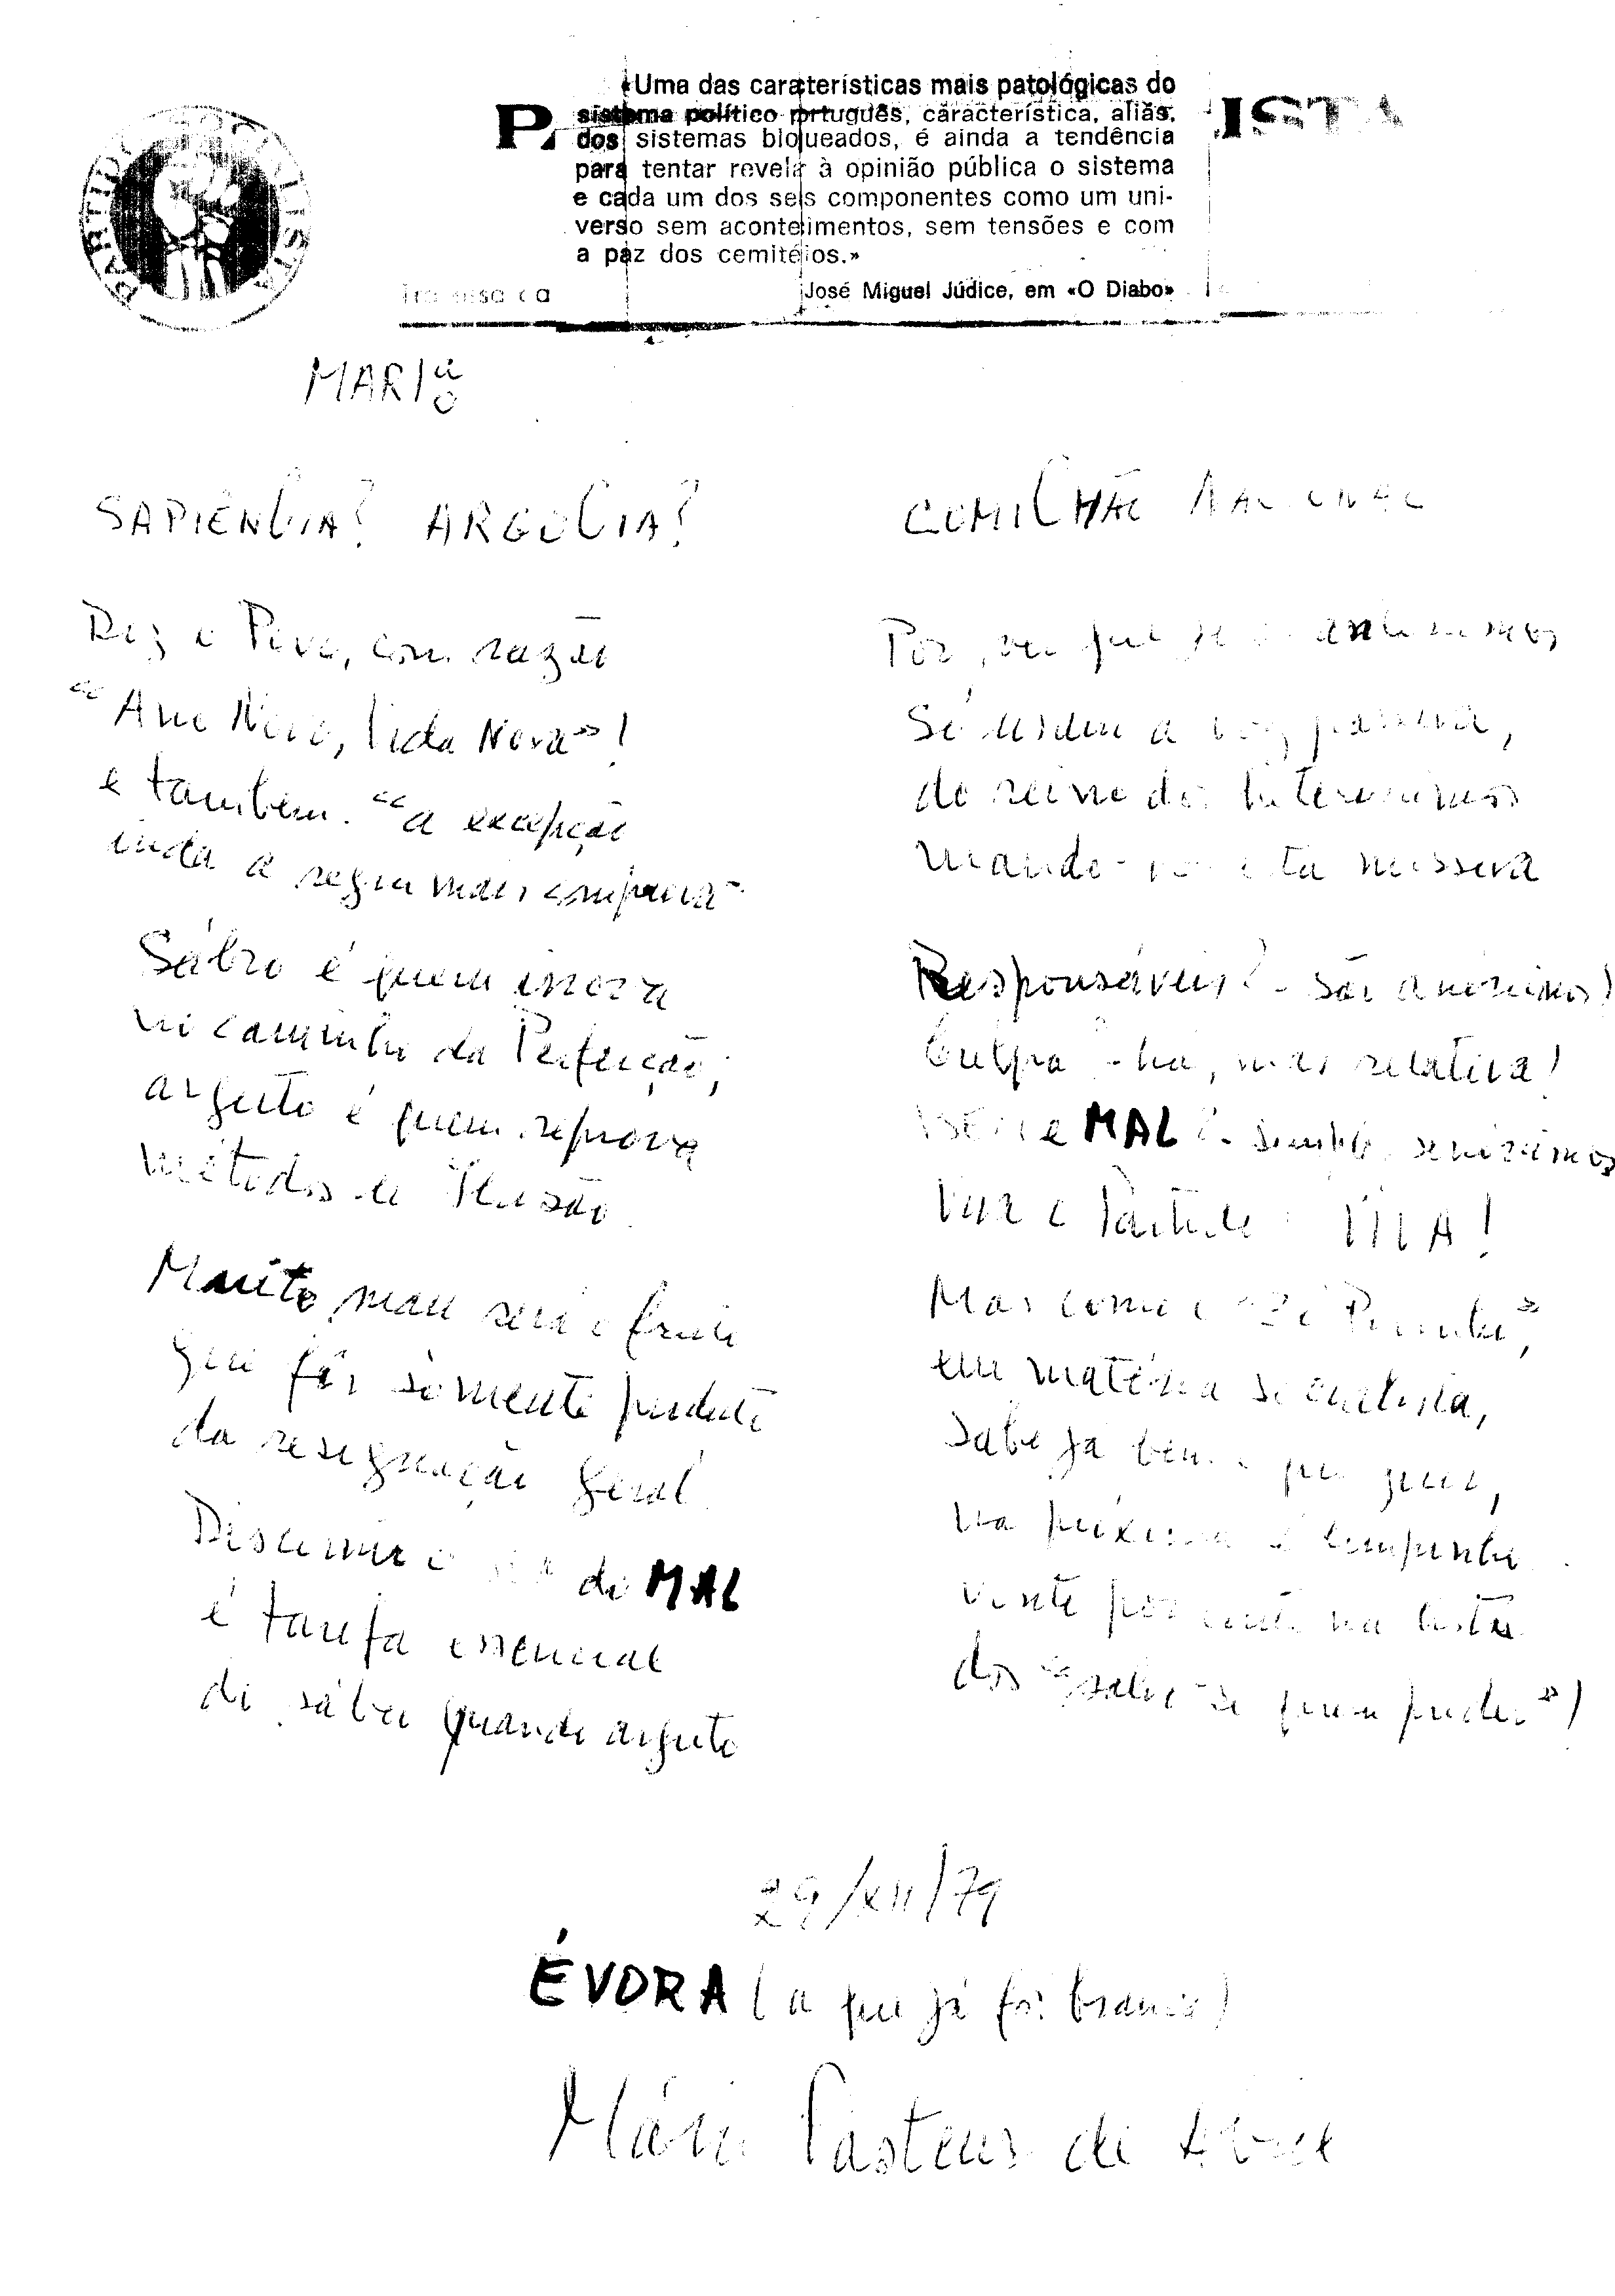 «Uma das características mais patológicas do
sistema político português, característica, aliás,
dos sistemas bloqueados, é ainda a tendência
para tentar revelar à opinião pública o sistema
e cada um dos seus componentes como um uni-
verso sem acontecimentos, sem tensões e com
a paz dos cemitérios.»
José Miguel Júdice, em «O Diabo»
P
ISTA
PARTIDO SOCIALISTA
SAPIÊNCIA? ARGÚCIA?
Diz o Povo, com razão
"Ano Novo, Vida Nova"!
e também: "a excepção
inda a regra mais comprova"
Sábio é quem inova
no caminho da Perfeição;
arguto é quem reprova
métodos de Ilusão.
Muito mau será o fruto
que fôr sòmente produto
da resignação geral.
Discernir o do MAL
é tarefa essencial
do sábio quando arguto
COMILHÃO NACIONAL
Por que se
Só a voz
do reino dos
mando-vos esta missiva
Responsáveis? - são anónimos!
Culpa? - há, mas relativa!
BEM e MAL? - sinónimos
Viva o Partido: VIVA!
Mas como o "Zé Povinho",
em matéria socialista,
sabe já bem o que quer,
na próxima
vinte por cento na lista
dos "salve-se quem puder"!
29/XII/79
ÉVORA (a que já foi branca)
Mário Pasteur de Abreu